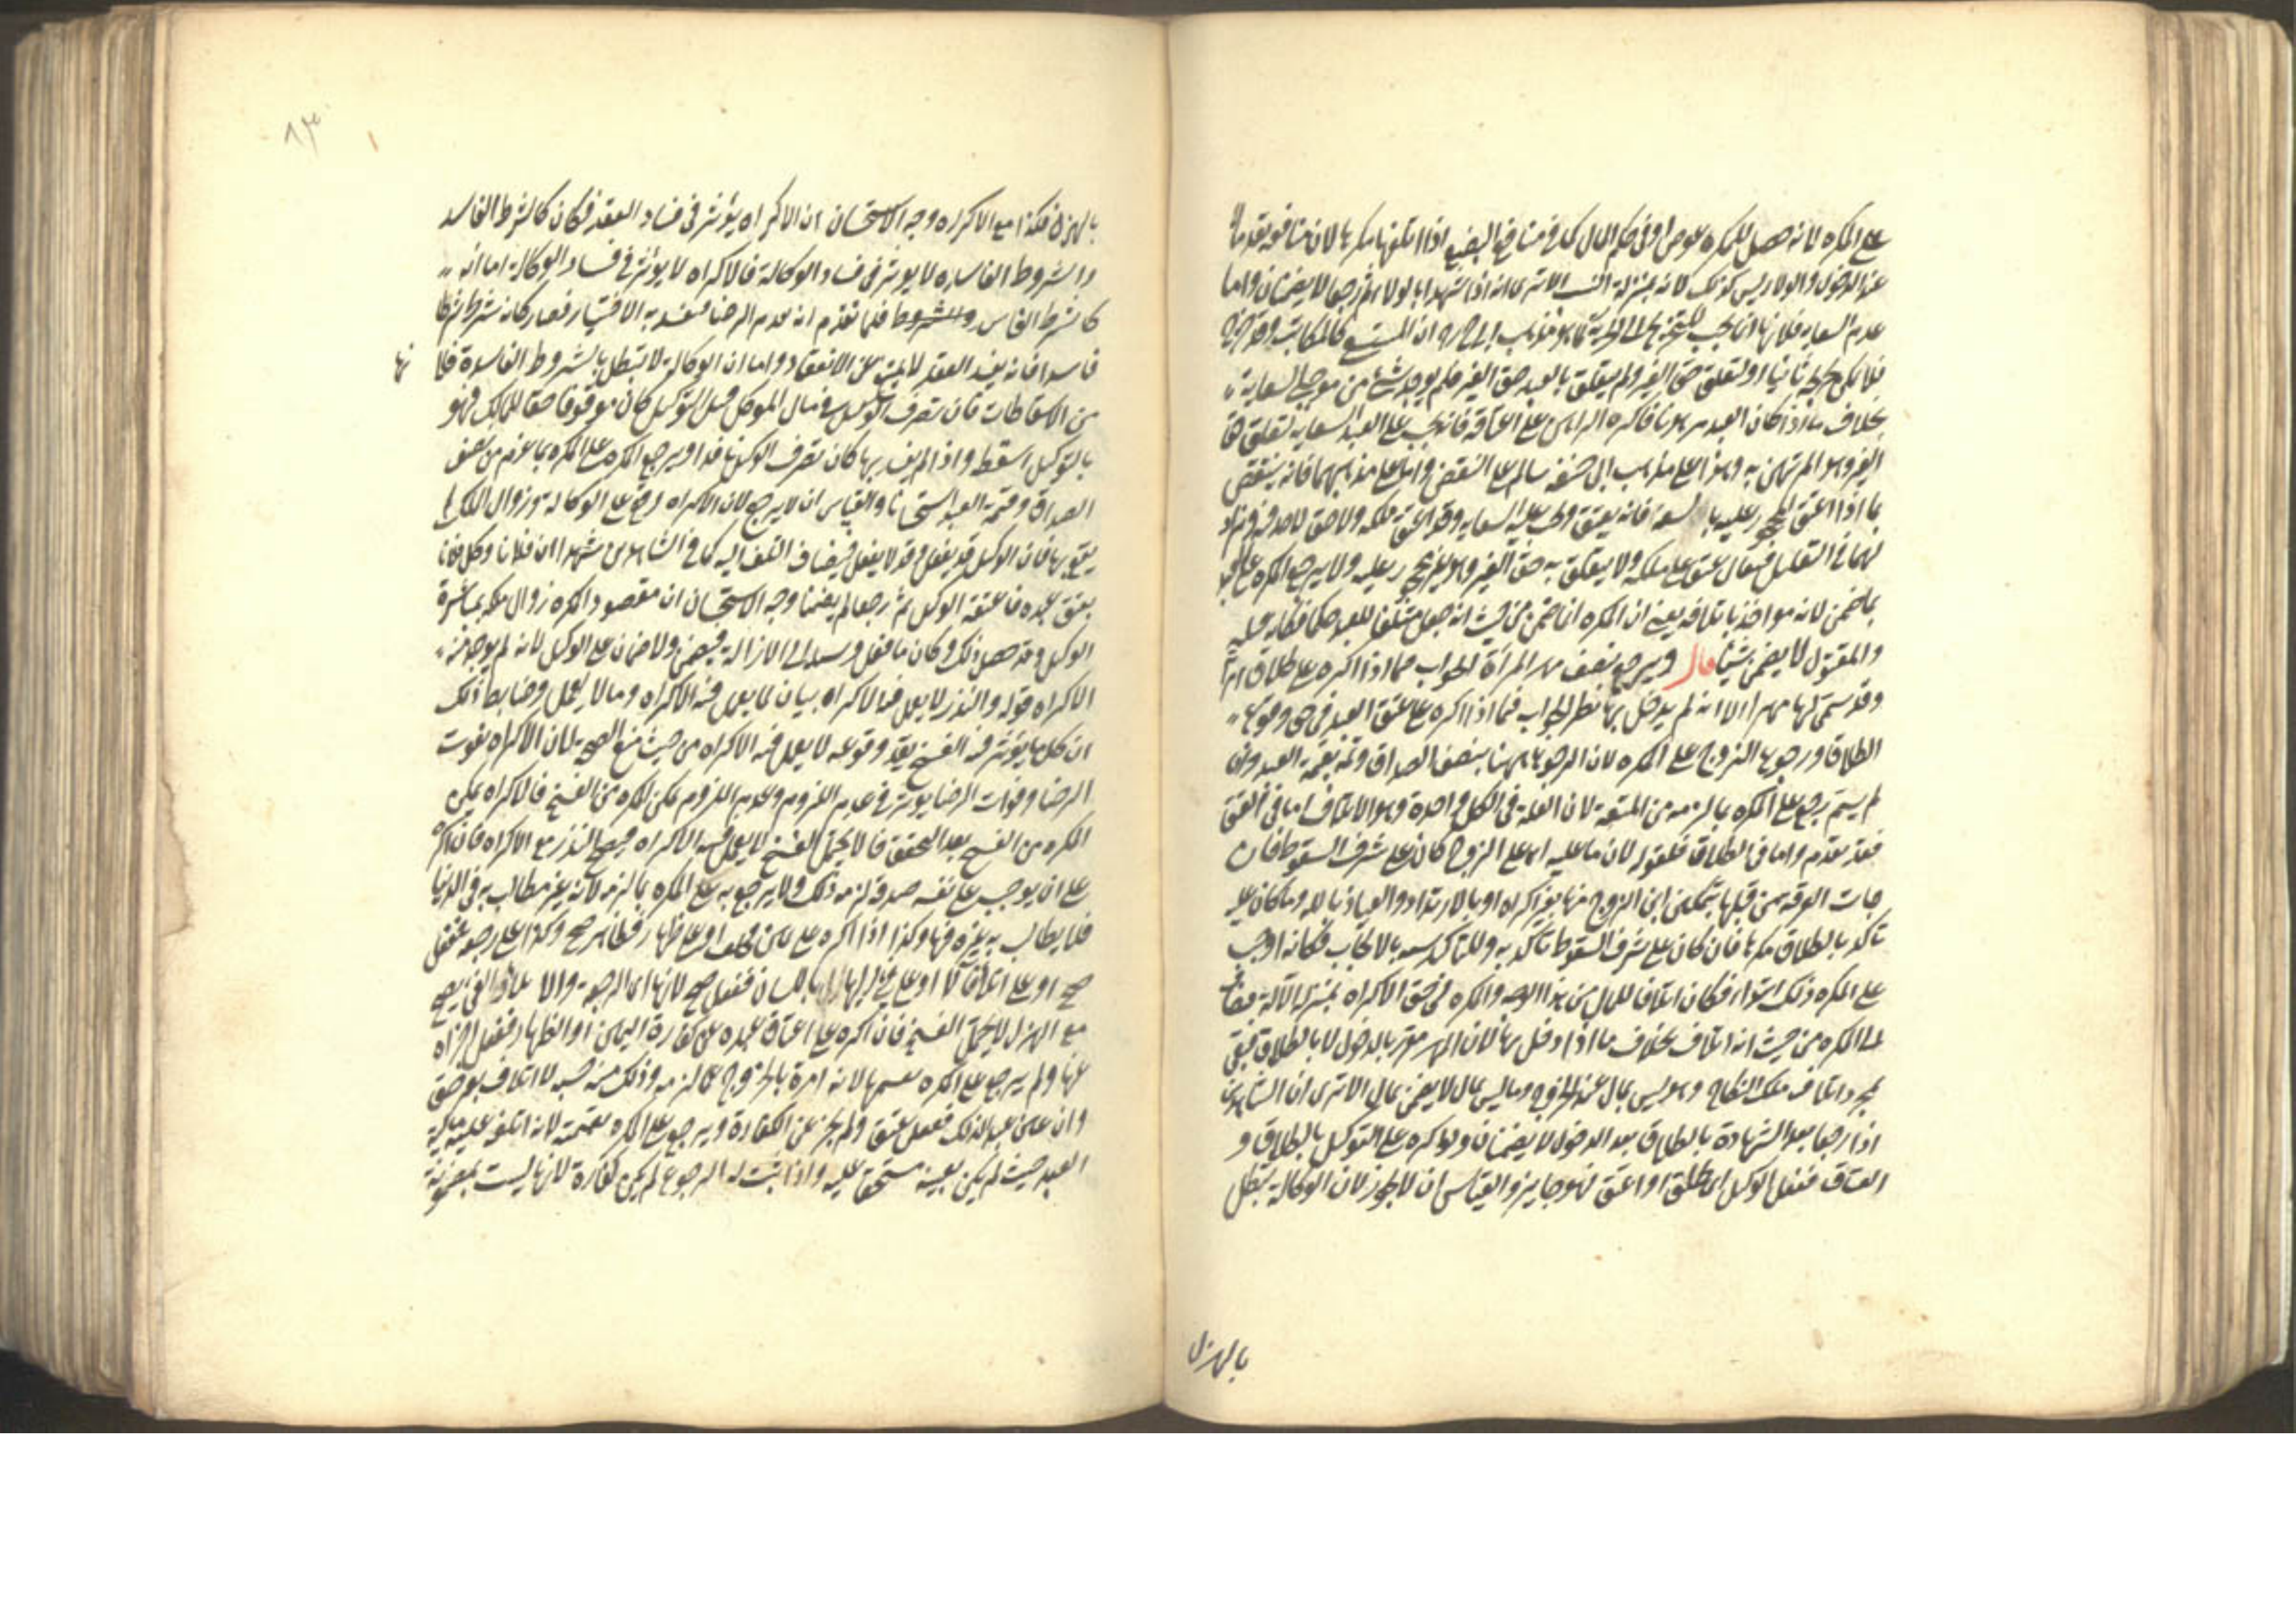 على المكره لانه حصل للمكره عوض او في حكم المال كما في منافع البضع اذا اتلفها مكرها لان منافعه تعد مالا
عند الدخول والولا ليس كذلك لانه بمنزلة النسب الا ترى انه اذا شهدا بالولا ثم رجعا لا يضمنان واما
عدم السعاية فلانها انما تجب للتخريج الى الحرية كما هو مذهب ابى ح ره ان المستسعى كالمكاتب وقد خرج
فلا يمكن تخريجه ثانيا او لتعلق حق الغير ولم يتعلق بالعبد حق الغير فلم يوجد شئ من موجب السعاية
بخلاف ما اذا كان العبد مرهونا فاكره الراهن على اعتاقه فانه يجب على العبد السعاية لتعلق حق
الغير وهو المرتهن به وهذا على مذهب ابى حنيفة سالم على النقض واما على مذهبهما فانه ينتقض
بما اذا اعتق المحجور عليه بالسفه فانه يعتق وتجب عليه السعاية وقد اعتق ملكه ولا حق لاحد فيه فزاد
لهما في التعليل فيقال عتق على ملكه ولا يتعلق به حق الغير وهو غير محجور عليه ولا يرجع المكره على العبد
بما ضمن لانه مواخذ باتلافه يعنى ان المكره انما ضمن من حيث انه جعل متلفا للعبد حكما فكانه قتله
والمقتول لا يضمن شيئا قال ويرجع بنصف مهر المراة الجواب فيما اذا اكره على طلاق امراة
وقد سمى لها مهرا الا انه لم يدخل بها نظير الجواب فيما اذا اكره على عتق العبد في حق وقوع
الطلاق ورجوع الزوج على المكره لان الرجوع ههنا بنصف الصداق وثمه بقيمة العبد وان
لم يسم يرجع على المكره بما لزمه من المتعة لان العلة في الكل واحدة وهو الاتلاف اما في العتق
فقد تقدم واما في الطلاق فلقوله لان ما عليه اى على الزوج كان على شرف السقوط فان
جات الفرقة من قبلها بتمكين ابن الزوج منها بغير اكراه او بالارتداد والعياذ بالله وما كان عليه
تاكد بالطلاق مكرها فان كان على شرف السقوط تاكد به وللتاكد شبه بالايجاب فكانه اوجب
على المكره ذلك ابتداء فكان اتلافا للمال من هذا الوجه والمكره في حق الاكراه بمنزلة الآلة فيضاف
الى المكره من حيث انه اتلاف بخلاف ما اذا دخل بها لان المهر تقرر بالدخول لا بالطلاق فبقى
مجرد اتلاف ملك النكاح وهو ليس بمال عند الخروج وما ليس بمال لا يضمن بمال الا ترى ان الشاهدين
اذا رجعا بعد الشهادة بالطلاق بعد الدخول لا يضمنان ولو اكره على التوكيل بالطلاق و
العتاق ففعل الوكيل اى طلق او اعتق فهو جايز والقياس ان لا يجوز لان الوكالة تبطل
بالهزل
بالهزل فكذا مع الاكراه وجه الاستحسان ان الاكراه يؤثر في فساد العقد فكان كالشرط الفاسد
والشروط الفاسدة لا يوثر في فساد الوكالة فالاكراه لا يؤثر في فساد الوكالة اما انه
كالشرط الفاسد والشروط فلما تقدم انه يعدم الرضا فيفسد به الاختيار فصار كانه شرط شرطا
فاسدا فانه يفسد العقد لا يمنع عن الانعقاد واما ان الوكالة لا تبطل بالشروط الفاسدة فلانها
من الاسقاطات فان تصرف الوكيل في مال الموكل قبل التوكيل كان موقوفا حقا للمالك فهو
بالتوكيل اسقط واذا لم يفسد بها كان تصرف الوكيل نافذا ويرجع المكره على المكره بما غرم من نصف
الصداق وقيمة العبد استحسانا والقياس ان لا يرجع لان الاكراه وقع على الوكالة وزوال الملك لم
يقع بها فان الوكيل قد يفعل وقد لا يفعل فيضاف التلف اليه كما في الشاهدين شهدا ان فلانا وكل فلانا
بعتق عبده فاعتقه الوكيل ثم رجعا لم يضمنا وجه الاستحسان ان مقصود المكره زوال ملكه بمباشرة
الوكيل وقد حصل ذلك وكان ما فعل وسيلة الى الازالة فيضمن ولا ضمان على الوكيل لانه لم يوجد منه
الاكراه قوله والنذر لا يعمل فيه الاكراه بيان لما يعمل فيه الاكراه وما لا يعمل وضابط ذلك
ان كل ما يؤثر فيه الفسخ بعد وقوعه لا يعمل فيه الاكراه من حيث منع الصحة لان الاكراه يفوت
الرضا وفوات الرضا يوثر في عدم اللزوم وعدم اللزوم يمكن المكره من الفسخ فالاكراه يمكن
المكره من الفسخ بعد التحقق فما لا يحتمل الفسخ لا يعمل فيه الاكراه فيصح النذر مع الاكراه فان اكره
على ان يوجب على نفسه صدقة لزمه ذلك ولا يرجع به على المكره بما لزمه لانه غير مطالب به في الدنيا
فلا يطالب به غيره فيها وكذا اذا اكره على يمين او على ظهار فظاهر صح وكذا على رجعة ففعل
صح او على ايلاء او على فئ اليها باللسان ففعل صح لانها اى الرجعة والايلاء والفئ يصح
مع الهزل لا يحتمل الفسخ فان اكره على اعتاق عبده عن كفارة اليمين او الظهار ففعل اجزاه
عنها ولم يرجع على المكره بقيمتها لانه امره بالخروج عما لزمه وذلك منه حسبة لا اتلاف بغير حق
وان عين عبدا لذلك ففعل عتق ولم يجز عن الكفارة ويرجع على المكره بقيمته لانه اتلف عليه مالية
العبد حيث لم يكن بعينه مستحقا عليه واذا ثبت له الرجوع لم يكن كفارة لانها ليست بمضمونة